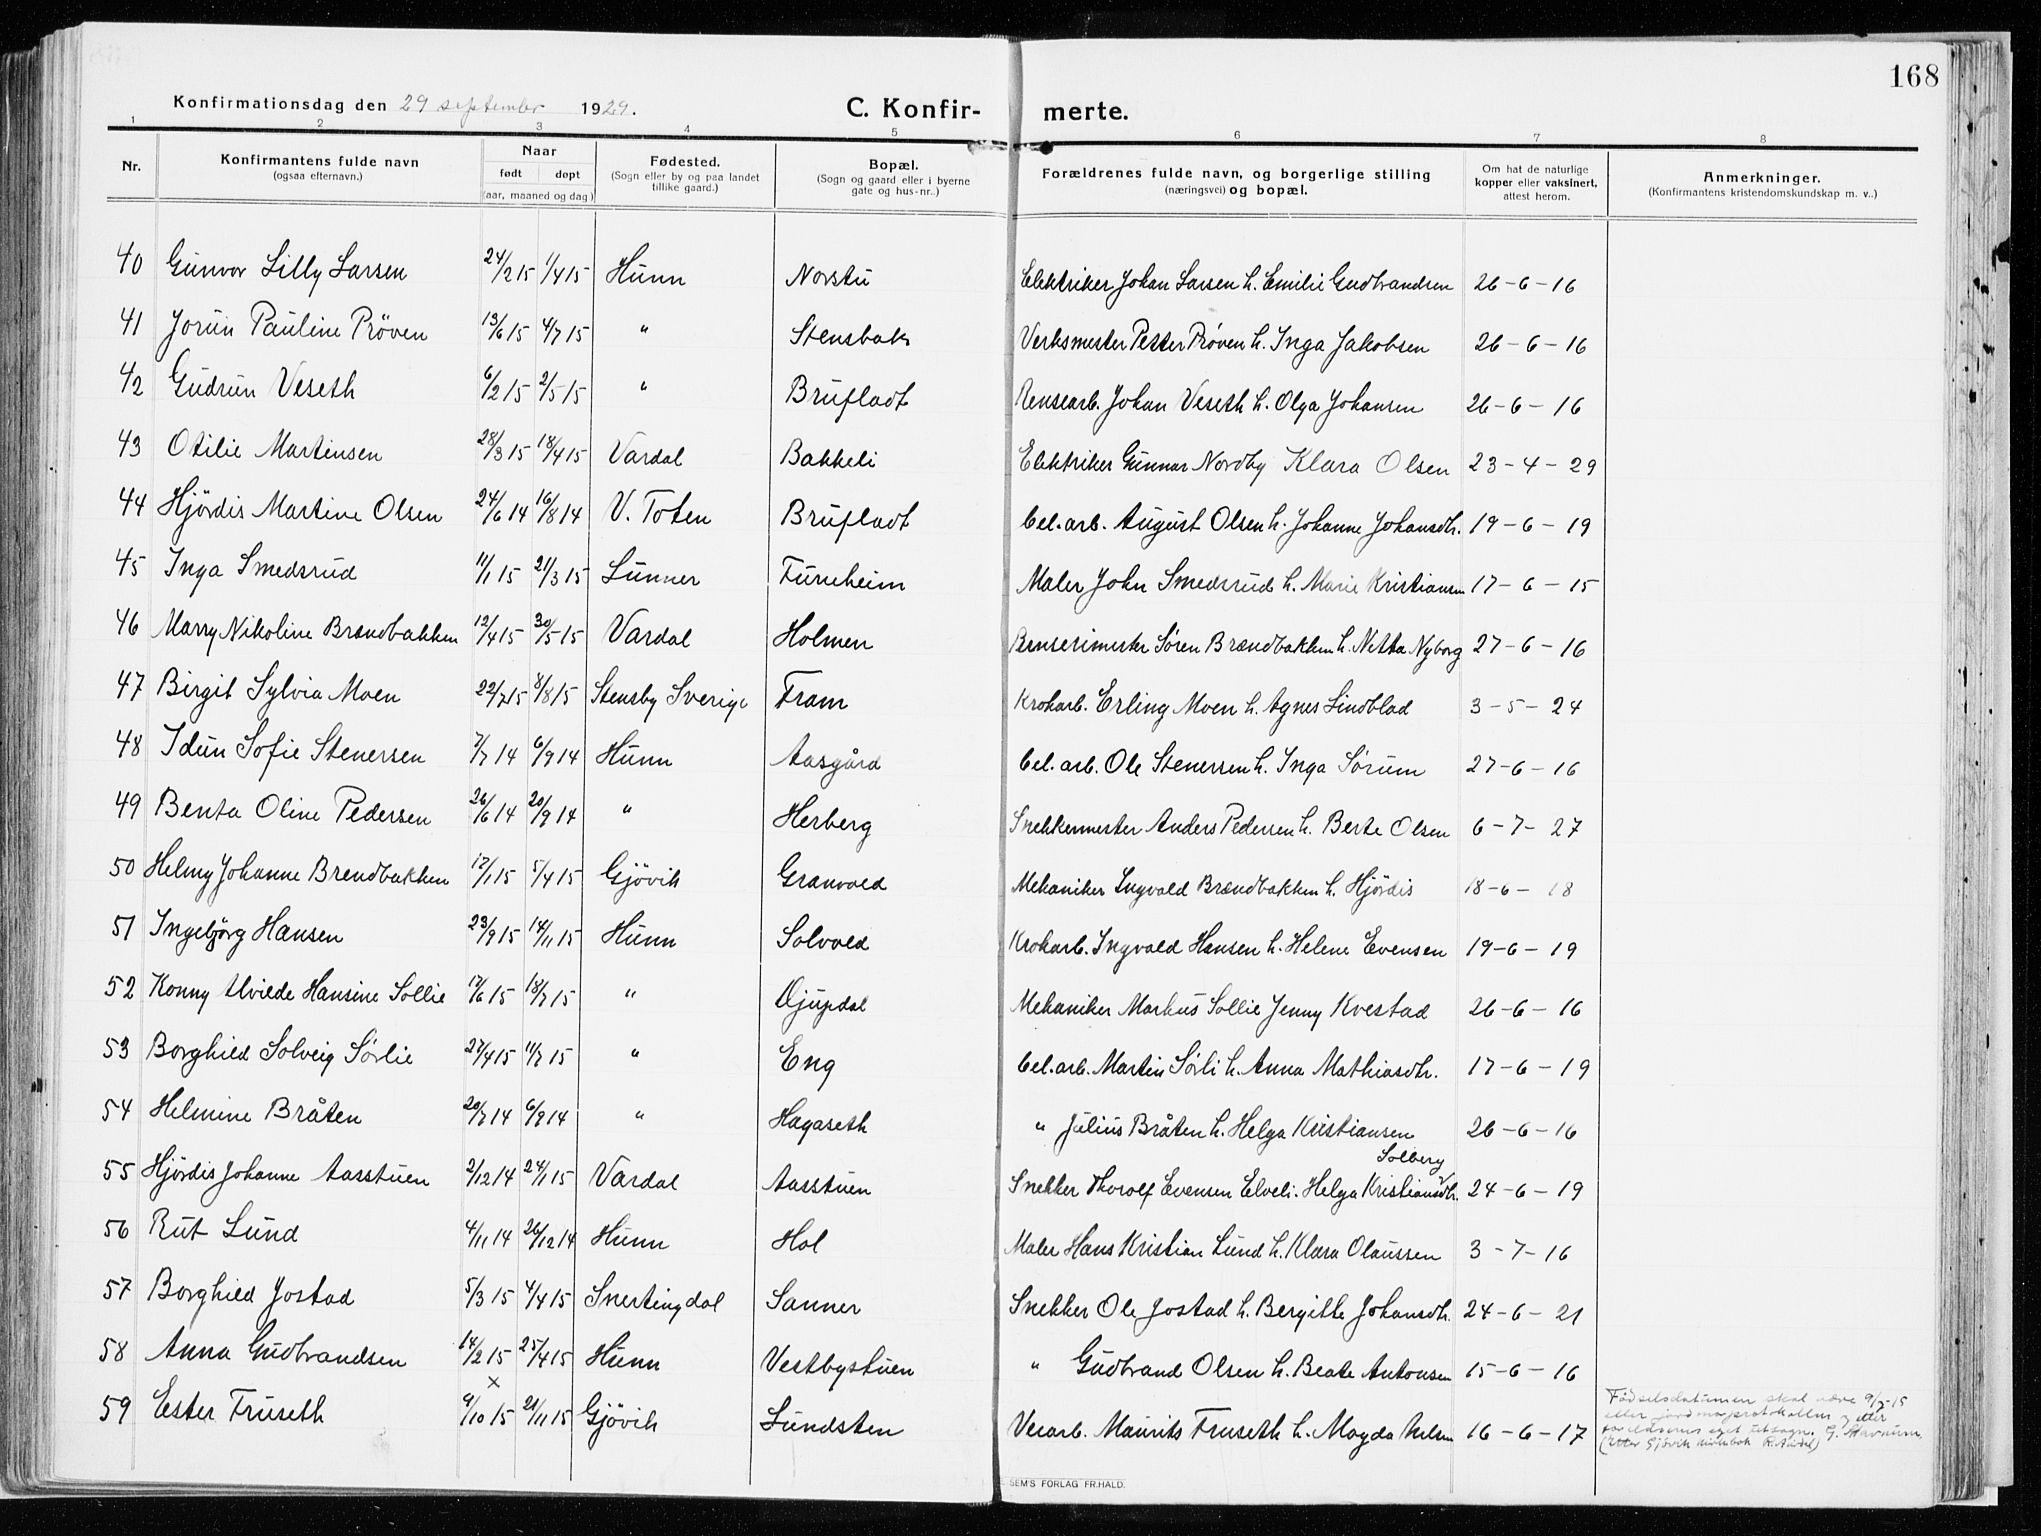 168
Konfirmationsdag den 29 september 1929.
C. Konfir- merte.
1 2 3 4 5 6 7 8
Nr.
Konfirmantens fulde navn
(ogsaa efternavn.)
Naar
født døpt
(aar, maaned og dag)
Fødested.
(Sogn eller by og paa landet
tillike gaard.)
Bopæl.
(Sogn og gaard eller i byerne
gate og hus-nr..)
Forældrenes fulde navn, og borgerlige stilling
(næringsvei) og bopæl.
Om hat de naturlige
kopper eller vaksinert,
attest herom.
Anmerkninger.
(Konfirmantens kristendomskundskap m. v..)
40 Gunvor Lilly Larsen 24/2 15 1/4 15 Hunn Norstu Elektriker Johan Larsen h. Emilie Gudbrandsen 26-6-16
41 Jorun Pauline Pröven 13/6 15 4/7 15 " Stensbak Verksmester Petter Pröven h. Inga Jakobsen 26-6-16
42 Gudrun Veseth 6/2 15 2/5 15 " Brufladt Rensearb. Johan Veseth h. Olga Johansen 26-6-16
43 Otilie Martinsen 28/3 15 18/4 15 Vardal Bakkeli Elektriker Gunnar Nordby Klara Olsen 23-4-29
44 Hjördis Martine Olsen 24/6 14 16/8 14 V. Toten Brufladt Cel. arb. August Olsen h. Johanne Johansdtr. 19-6-19
45 Inga Smedsrud 11/1 15 21/3 15 Lunner Furuheim Maler John Smedsrud h. Marie Kristiansen 17-6-15
46 Marry Nikoline Brændbakken 12/4 15 30/5 15 Vardal Holmen Søren Brændbakken h. Netta Nyborg 27-6-16
47 Birgit Sylvia Moen 22/7 15 8/8 15 Stensby Sverige Fram Krokarb. Erling Moen h. Agnes Lindblad 3-5-24
48 Idun Sofie Stenersen 7/7 14 6/9 14 Hunn Aasgård Cel. arb. Ole Stenersen h. Inga Sörum 27-6-16
49 Benta Oline Pedersen 26/6 14 20/9 14 " Herberg Snekkermester Anders Pedersen h. Berte Olsen 6-7-27
50 Helmy Johanne Brendbakken 17/1 15 5/4 15 Gjövik Granvold Mekaniker Ingvald Brændbakken h. Hjördis 18-6-18
51 Ingebjörg Hansen 23/9 15 14/11 15 Hunn Solvold Krokarb. Ingvald Hansen h. Helene Evensen 19-6-19
52 Konny Alvilde Hansine Sollie 17/6 15 18/7 15 " Djupdal Mekaniker Markus Sollie Jenny Kvestad 26-6-16
53 Borghild Solveig Sörlie 27/4 15 11/7 15 " Eng Cel. arb. Martin Sörli h. Anna Mathiasdtr. 17-6-19
54 Helmine Bråten 20/7 14 6/9 14 " Hagaseth " Julius Bråten h. Helga Kristiansen 26-6-16
Solberg
55 Hjördis Johanne Aasstuen 2/12 14 24/1 15 Vardal Aasstuen Snekker Thorolf Evensen Elveli. Helga Kristiansdtr. 24-6-19
56 Rut Lund 4/11 14 26/12 14 Hunn Hol Maler Hans Kristian Lund h. Klara Olaussen 3-7-16
57 Borghild Jostad 5/3 15 4/4 15 Snertingdal Sanner Snekker Ole Jostad h. Bergitte Johansdtr. 24-6-21
58 Anna Gudbrandsen 14/2 15 25/4 15 Hunn Vestbystuen " Gudbrand Olsen h. Beate Antonsen 15-6-16
x
59 Ester Fruseth 9/10 15 21/11 15 Gjövik Lundsten Maurits Fruseth h. Magda Nelsen 16-6-17
Födselsdatumen skal være 9/ -15
efter jordmorprotokollen og etter
foreldrenes eget utsagn. G.
(etter Gjövik kirkebok)
SEM'S FORLAG FR.HALD.